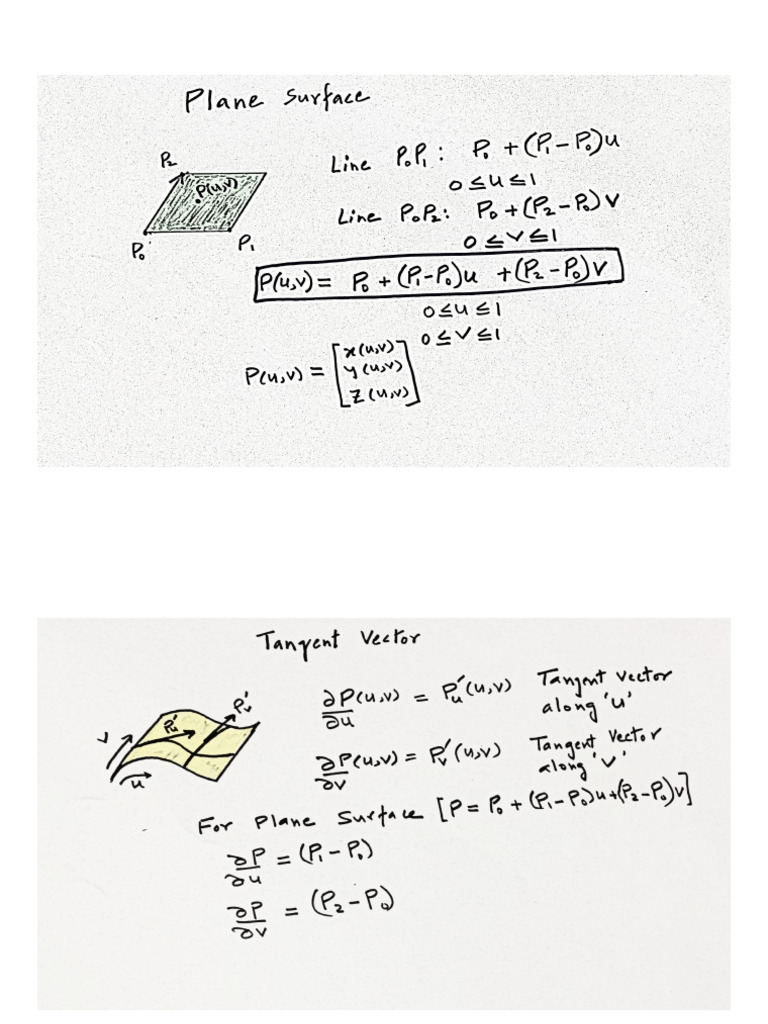 Plane Surface
P₂
P(u,v)
P₀
P₁
Line P₀P₁: P₀ + (P₁ − P₀)u
0 ≤ u ≤ 1
Line P₀P₂: P₀ + (P₂ − P₀)v
0 ≤ v ≤ 1
P(u,v) = P₀ + (P₁ − P₀)u + (P₂ − P₀)v
0 ≤ u ≤ 1
0 ≤ v ≤ 1
P(u,v) = [x(u,v)
y(u,v)
z(u,v)]
Tangent Vector
P'ᵥ
P'ᵤ
v
u
∂P(u,v)/∂u = P'ᵤ(u,v) Tangent vector
along 'u'
∂P(u,v)/∂v = P'ᵥ(u,v) Tangent Vector
along 'v'
For Plane Surface [P = P₀ + (P₁ − P₀)u + (P₂ − P₀)v]
∂P/∂u = (P₁ − P₀)
∂P/∂v = (P₂ − P₀)